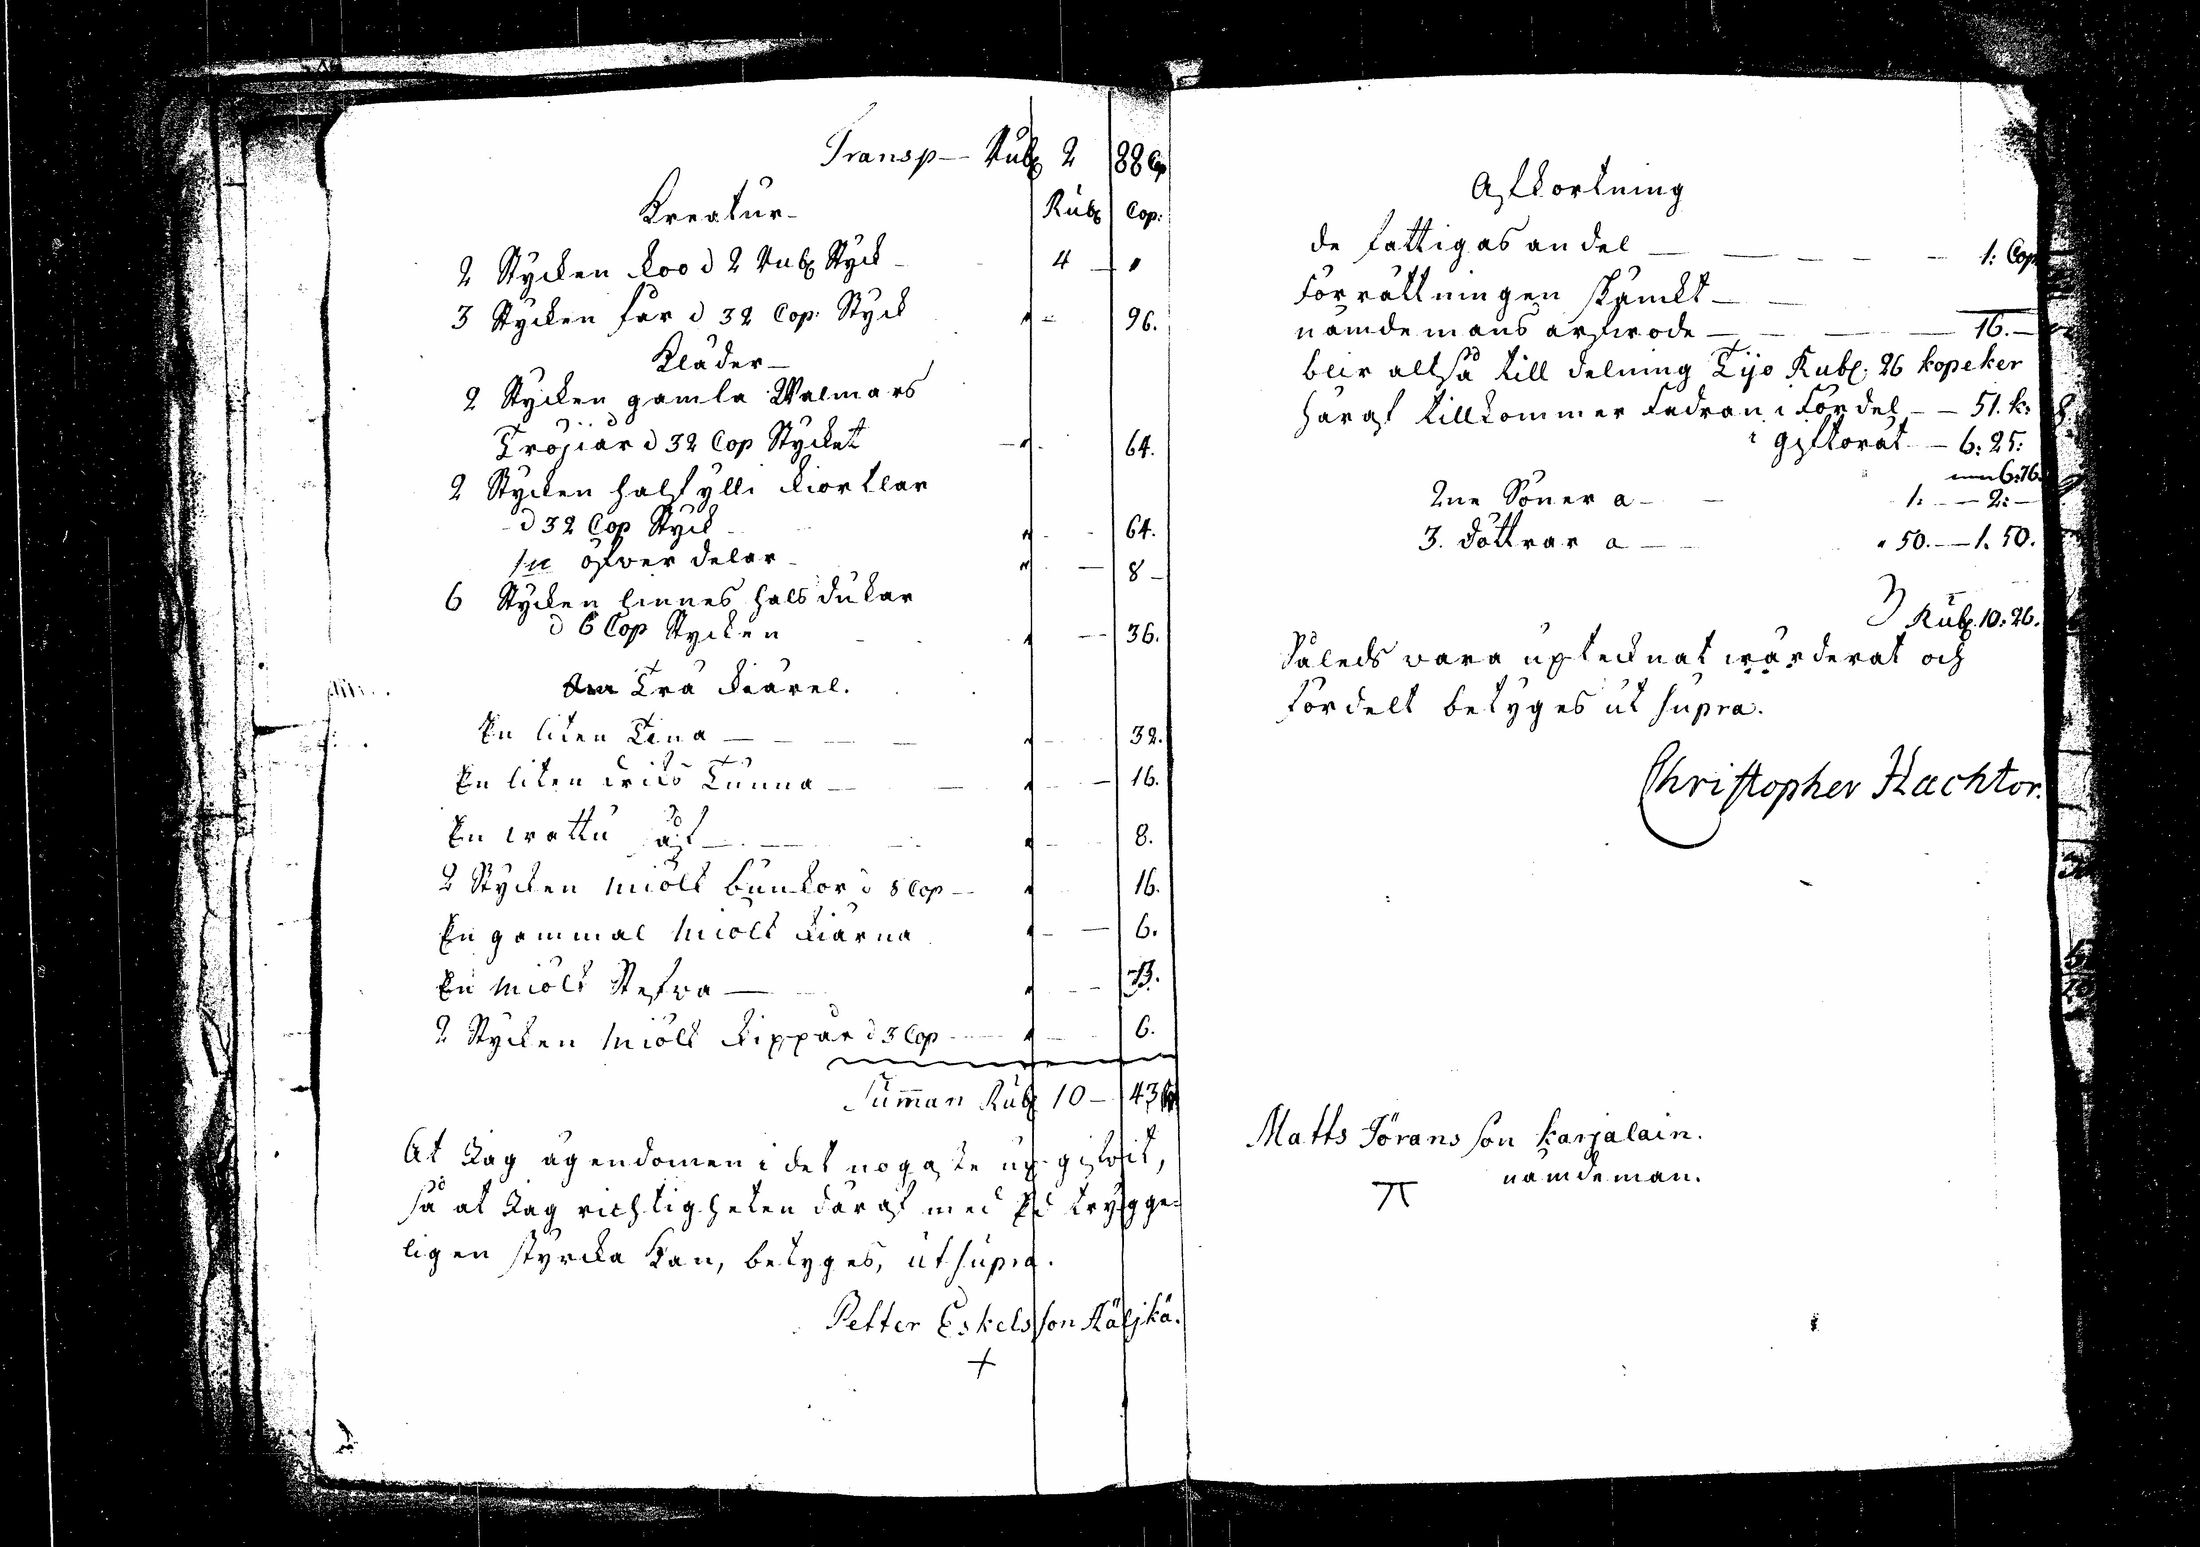 Transp — Rubl 2 88 Cop
Kreatur — Rubl Cop:
2 Stycken koo à 2 Rubl Styck — 4 — "
3 Stycken får à 32 Cop: Styck " — 96.
Kläder —
2 Stycken gamla Walmars
Tröjiar à 32 Cop Stycket — " 64.
2 Stycken halfylli kiortlar
à 32 Cop Styck — " 64.
öfwer delar — " — 8 —
6 Stycken linnes hals dukar
à 6 Cop Stycken " — 36.
Trä kiärel.
En liten Tina — " 32.
En liten Tunna — " — 16.
En wattu så — " 8.
2 Stycken miölk bunkor à 8 Cop — " 16.
En gammal miölk kiärna " — 6.
En miölk Stefwa — " — 3.
2 Stycken miölk kippar à 3 Cop — " 6.
Summan Rubl 10 — 43
At Jag ägendomen i det nogaste up gifwit,
så at Jag richtigheten däraf med Ed trygge-
ligen styrcka kan, betyges, ut supra.
Petter Eskelsson
+
Afkortning
de fattigas andel — 1: Cop
Förrättningen skänckt —
nämdemans arfwode — 16. —
blir altså till delning Tijo Rubl. 26 kopeker
häraf tillkommer Fadran i Fördel — 51. k:
i giftorät — 6: 25:
6:76.
2ne Söner a — 1: — 2: —
3. döttrar a — " 50. — 1. 50.
Rubl. 10: 26.
Således vara uptecknat wärderat och
fördelt betyges ut supra.
Christopher Hachtor.
Matts Jöransson Karjalain.
nämdeman.